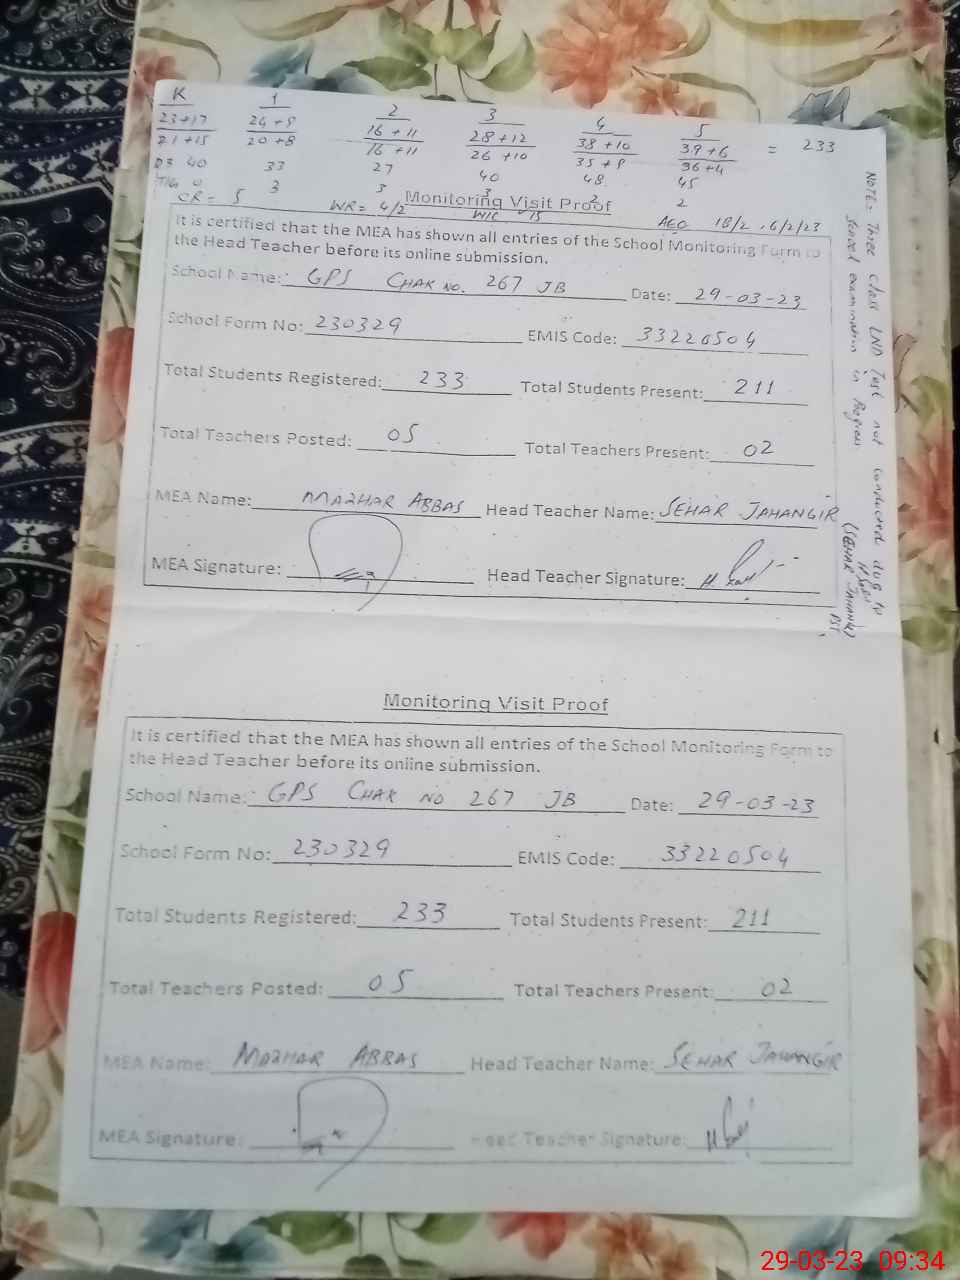 K 1 2 3 4 5
23+17 24+9 16+11 28+12 38+10 39+6 = 233
21+15 20+8 16+11 26+10 35+9 36+4
40 33 27 40 48 45
0 3 3 3 2 2
CR= 5 WR= 4/2 W/C 15 AEO 18/2, 6/2/23
Monitoring Visit Proof
It is certified that the MEA has shown all entries of the School Monitoring Form to
the Head Teacher before its online submission.
School Name: GPS CHAK NO. 267 JB Date: 29-03-23
School Form No: 230329 EMIS Code: 33220504
Total Students Registered: 233 Total Students Present: 211
Total Teachers Posted: 05 Total Teachers Present: 02
MEA Name: MAZHAR ABBAS Head Teacher Name: SEHAR JAHANGIR
MEA Signature: Head Teacher Signature:
NOTE= Three class LND Test not conducted due to
School examination in Progress.
(SEHAR JAHANGIR)
PST
Monitoring Visit Proof
It is certified that the MEA has shown all entries of the School Monitoring Form to
the Head Teacher before its online submission.
School Name: GPS CHAK NO 267 JB Date: 29-03-23
School Form No: 230329 EMIS Code: 33220504
Total Students Registered: 233 Total Students Present: 211
Total Teachers Posted: 05 Total Teachers Present: 02
MEA Name: MAZHAR ABBAS Head Teacher Name: SEHAR JAHANGIR
MEA Signature: Head Teacher Signature:
29-03-23 09:34